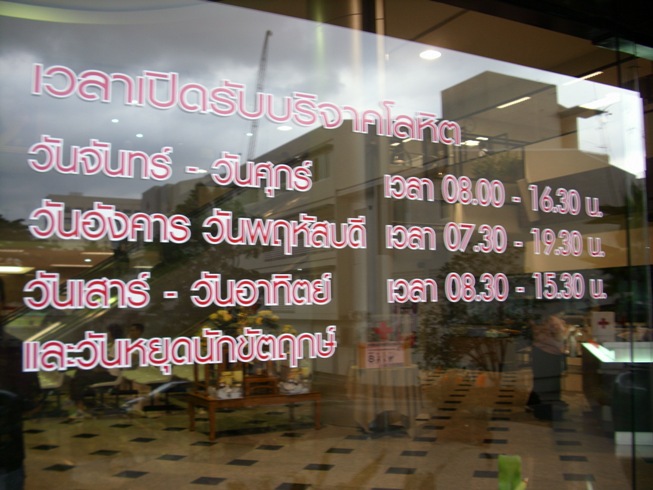 เวลาเปิดรับบริจาคโลหิต
วันจันทร์ - วันศุกร์ เวลา 08.00 - 16.30 น.
วันอังคาร วันพฤหัสบดี เวลา 07.30 - 19.30 น.
วันเสาร์ - วันอาทิตย์ เวลา 08.30 - 15.30 น.
และวันหยุดนักขัตฤกษ์